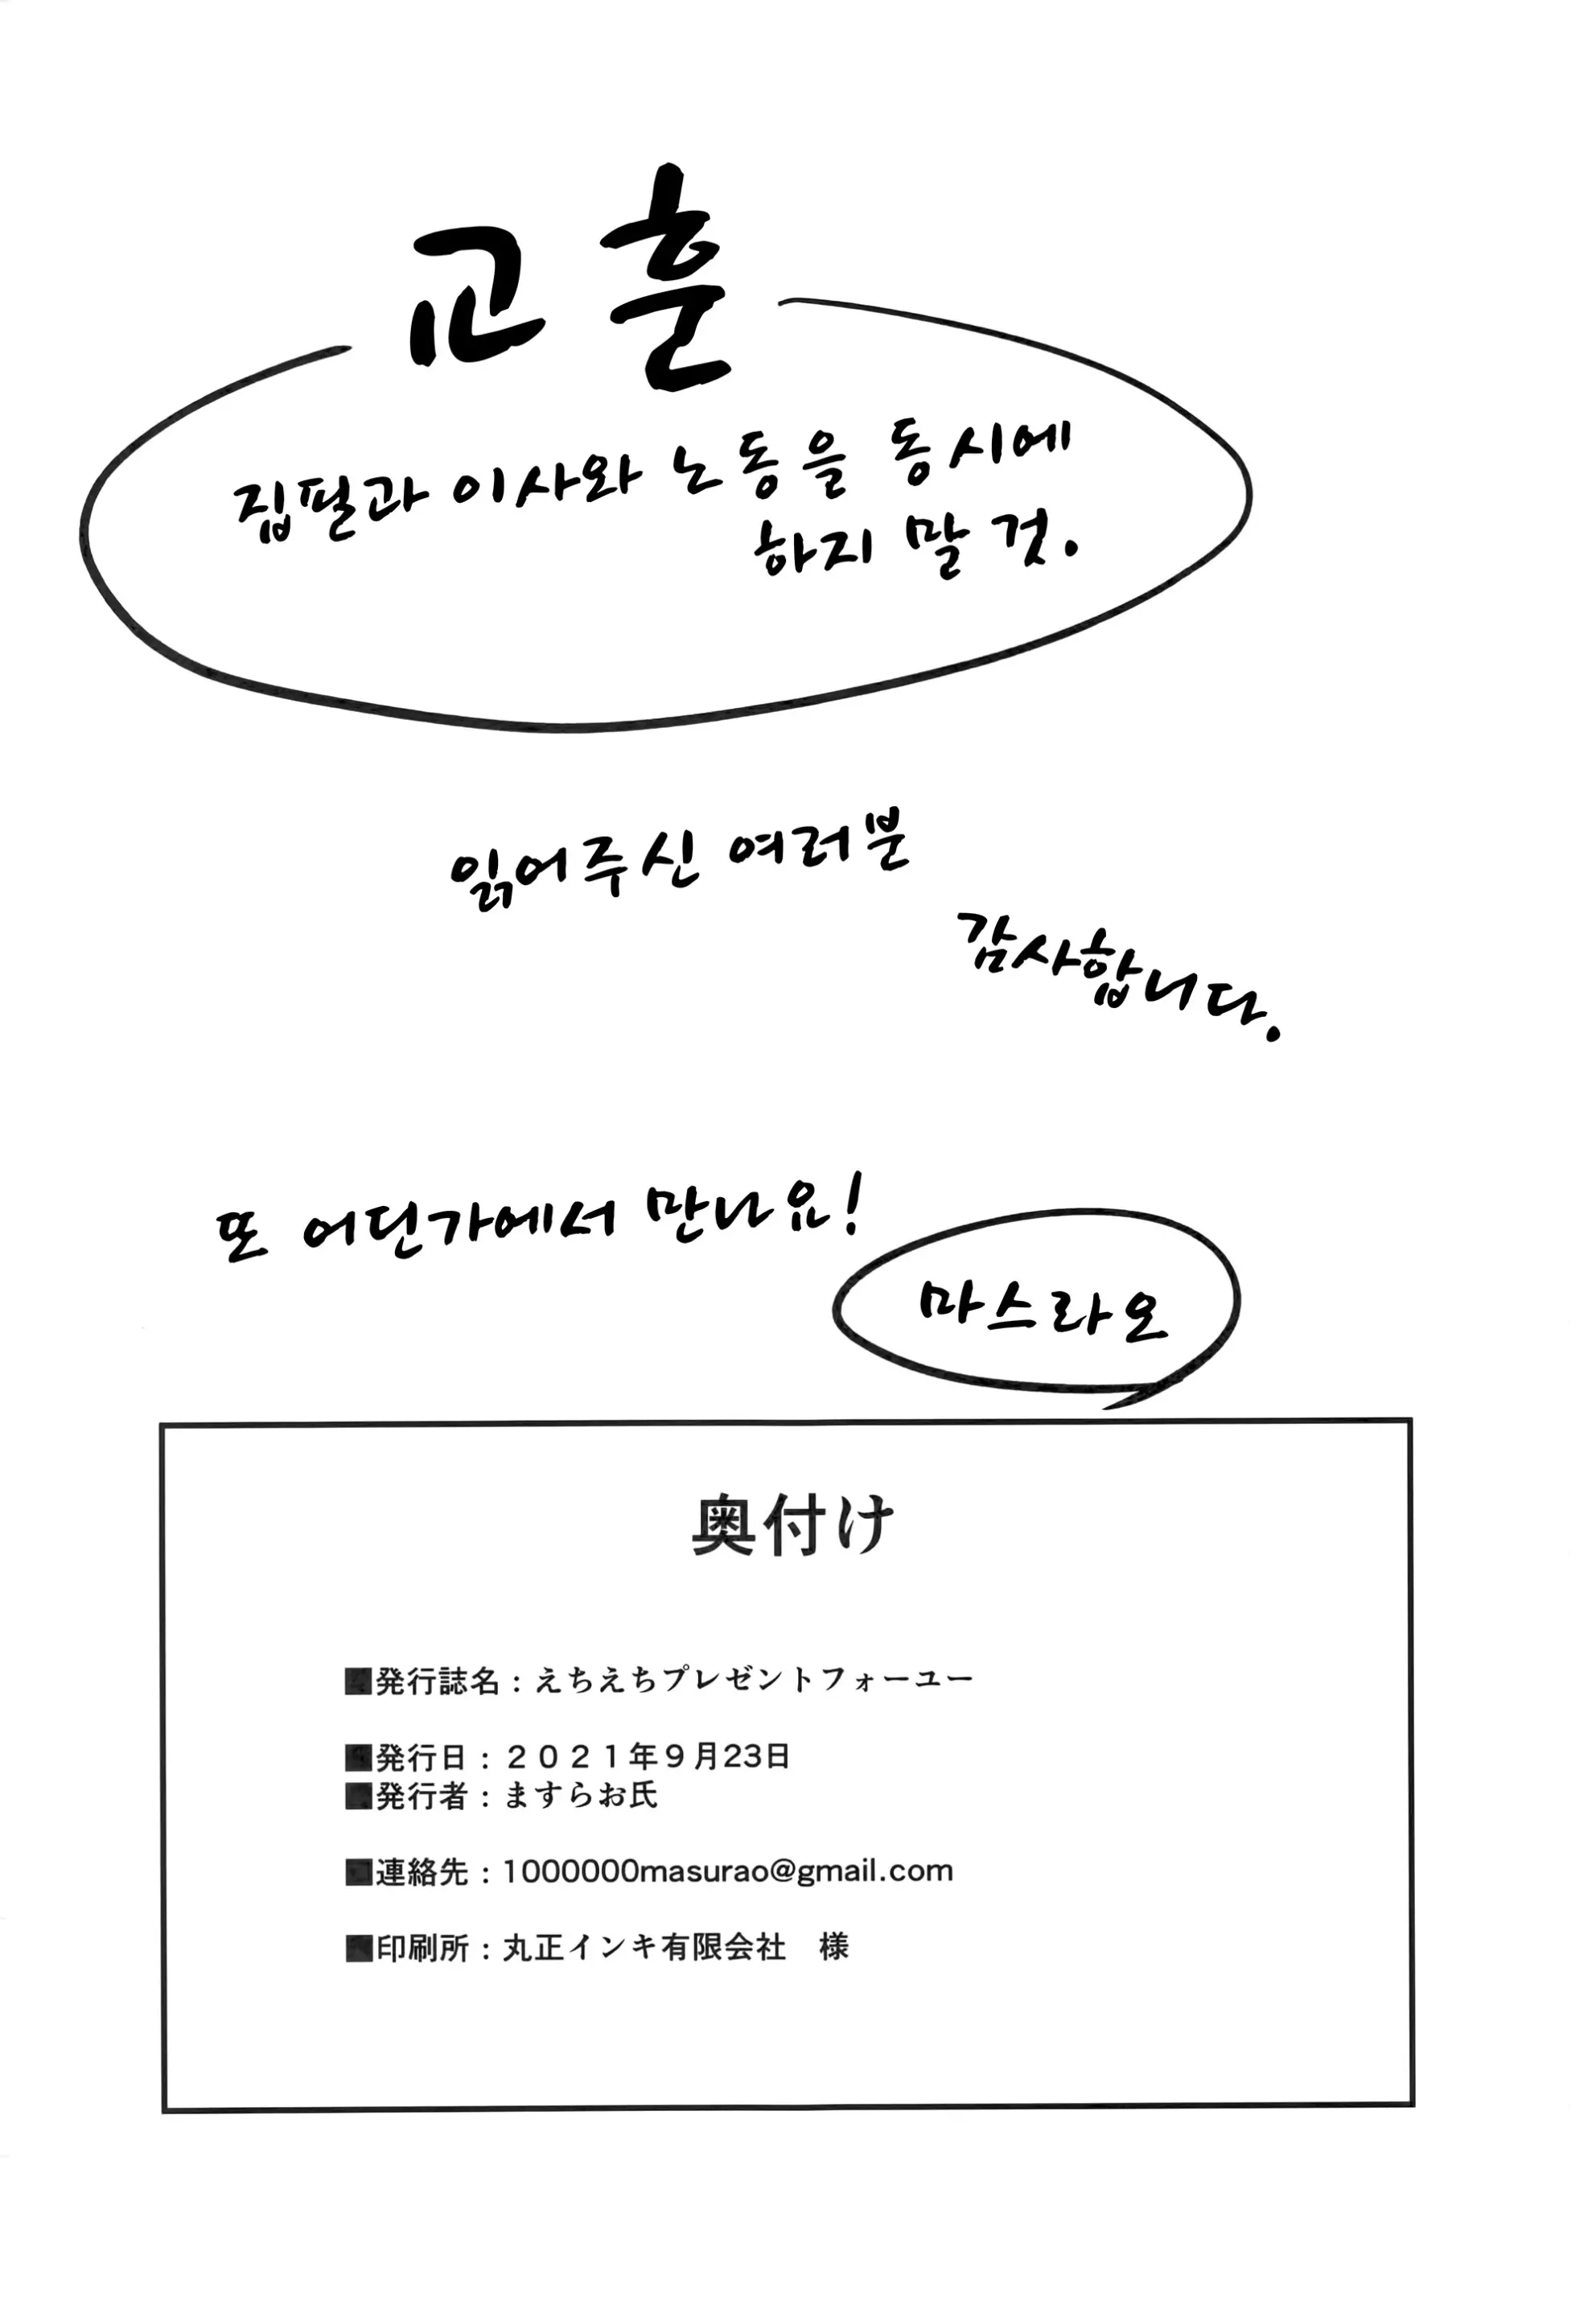 교훈
집필과 이사와 노동을 동시에
하지 말 것.
읽어주신 여러분
감사합니다.
또 어딘가에서 만나요!
마스라오
奥付け
■発行誌名：えちえちプレゼントフォーユー
■発行日：２０２１年９月23日
■発行者：ますらお氏
■連絡先：1000000masurao@gmail.com
■印刷所：丸正インキ有限会社　様